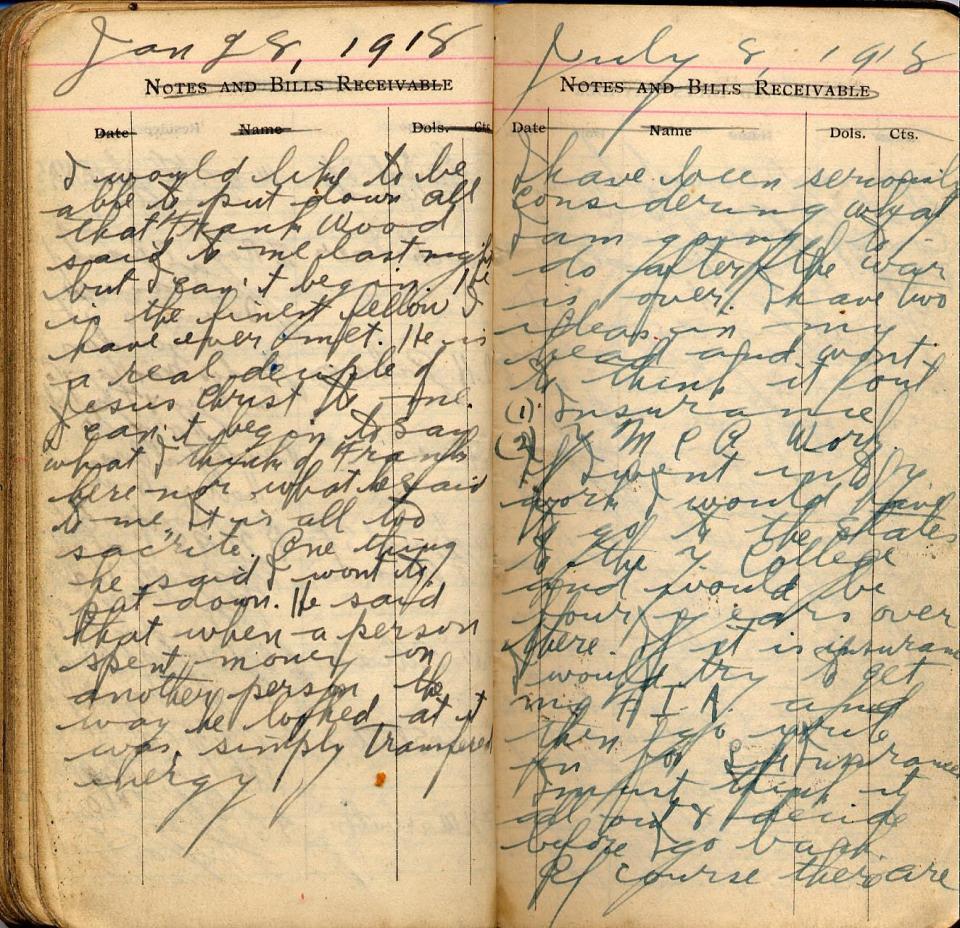 Jan 28, 1918
NOTES AND BILLS RECEIVABLE
Date Name Dols. Cts.
I would like to be
able to put down all
that Frank Wood
said to me last night
but I can't begin. He
is the finest fellow I
have ever met. He is
a real deciple of
Jesus Christ to me.
I can't begin to say
what I think of Frank
here nor what he said
to me, it is all too
sacrite. One thing
he said I wont to
put down. He said
that when a person
spent money on
another person the
way he looked at it
was, simply transfered
energy
July 8, 1918
NOTES AND BILLS RECEIVABLE
Date Name Dols. Cts.
I have been seriously
considering what
I am going to
do after the war
is over. I have two
ideas in my
head and wont
to think it out
(1) Insurance
(2) Y M C A Work.
If I went into Y
work I would have
to go to the States
to the Y College
and would be
four years over
there. If it is insurance
I would try to get
my A.I.A. and
then go
in for Insurance
I must think it
all out & decide
before I go back.
Of course there are